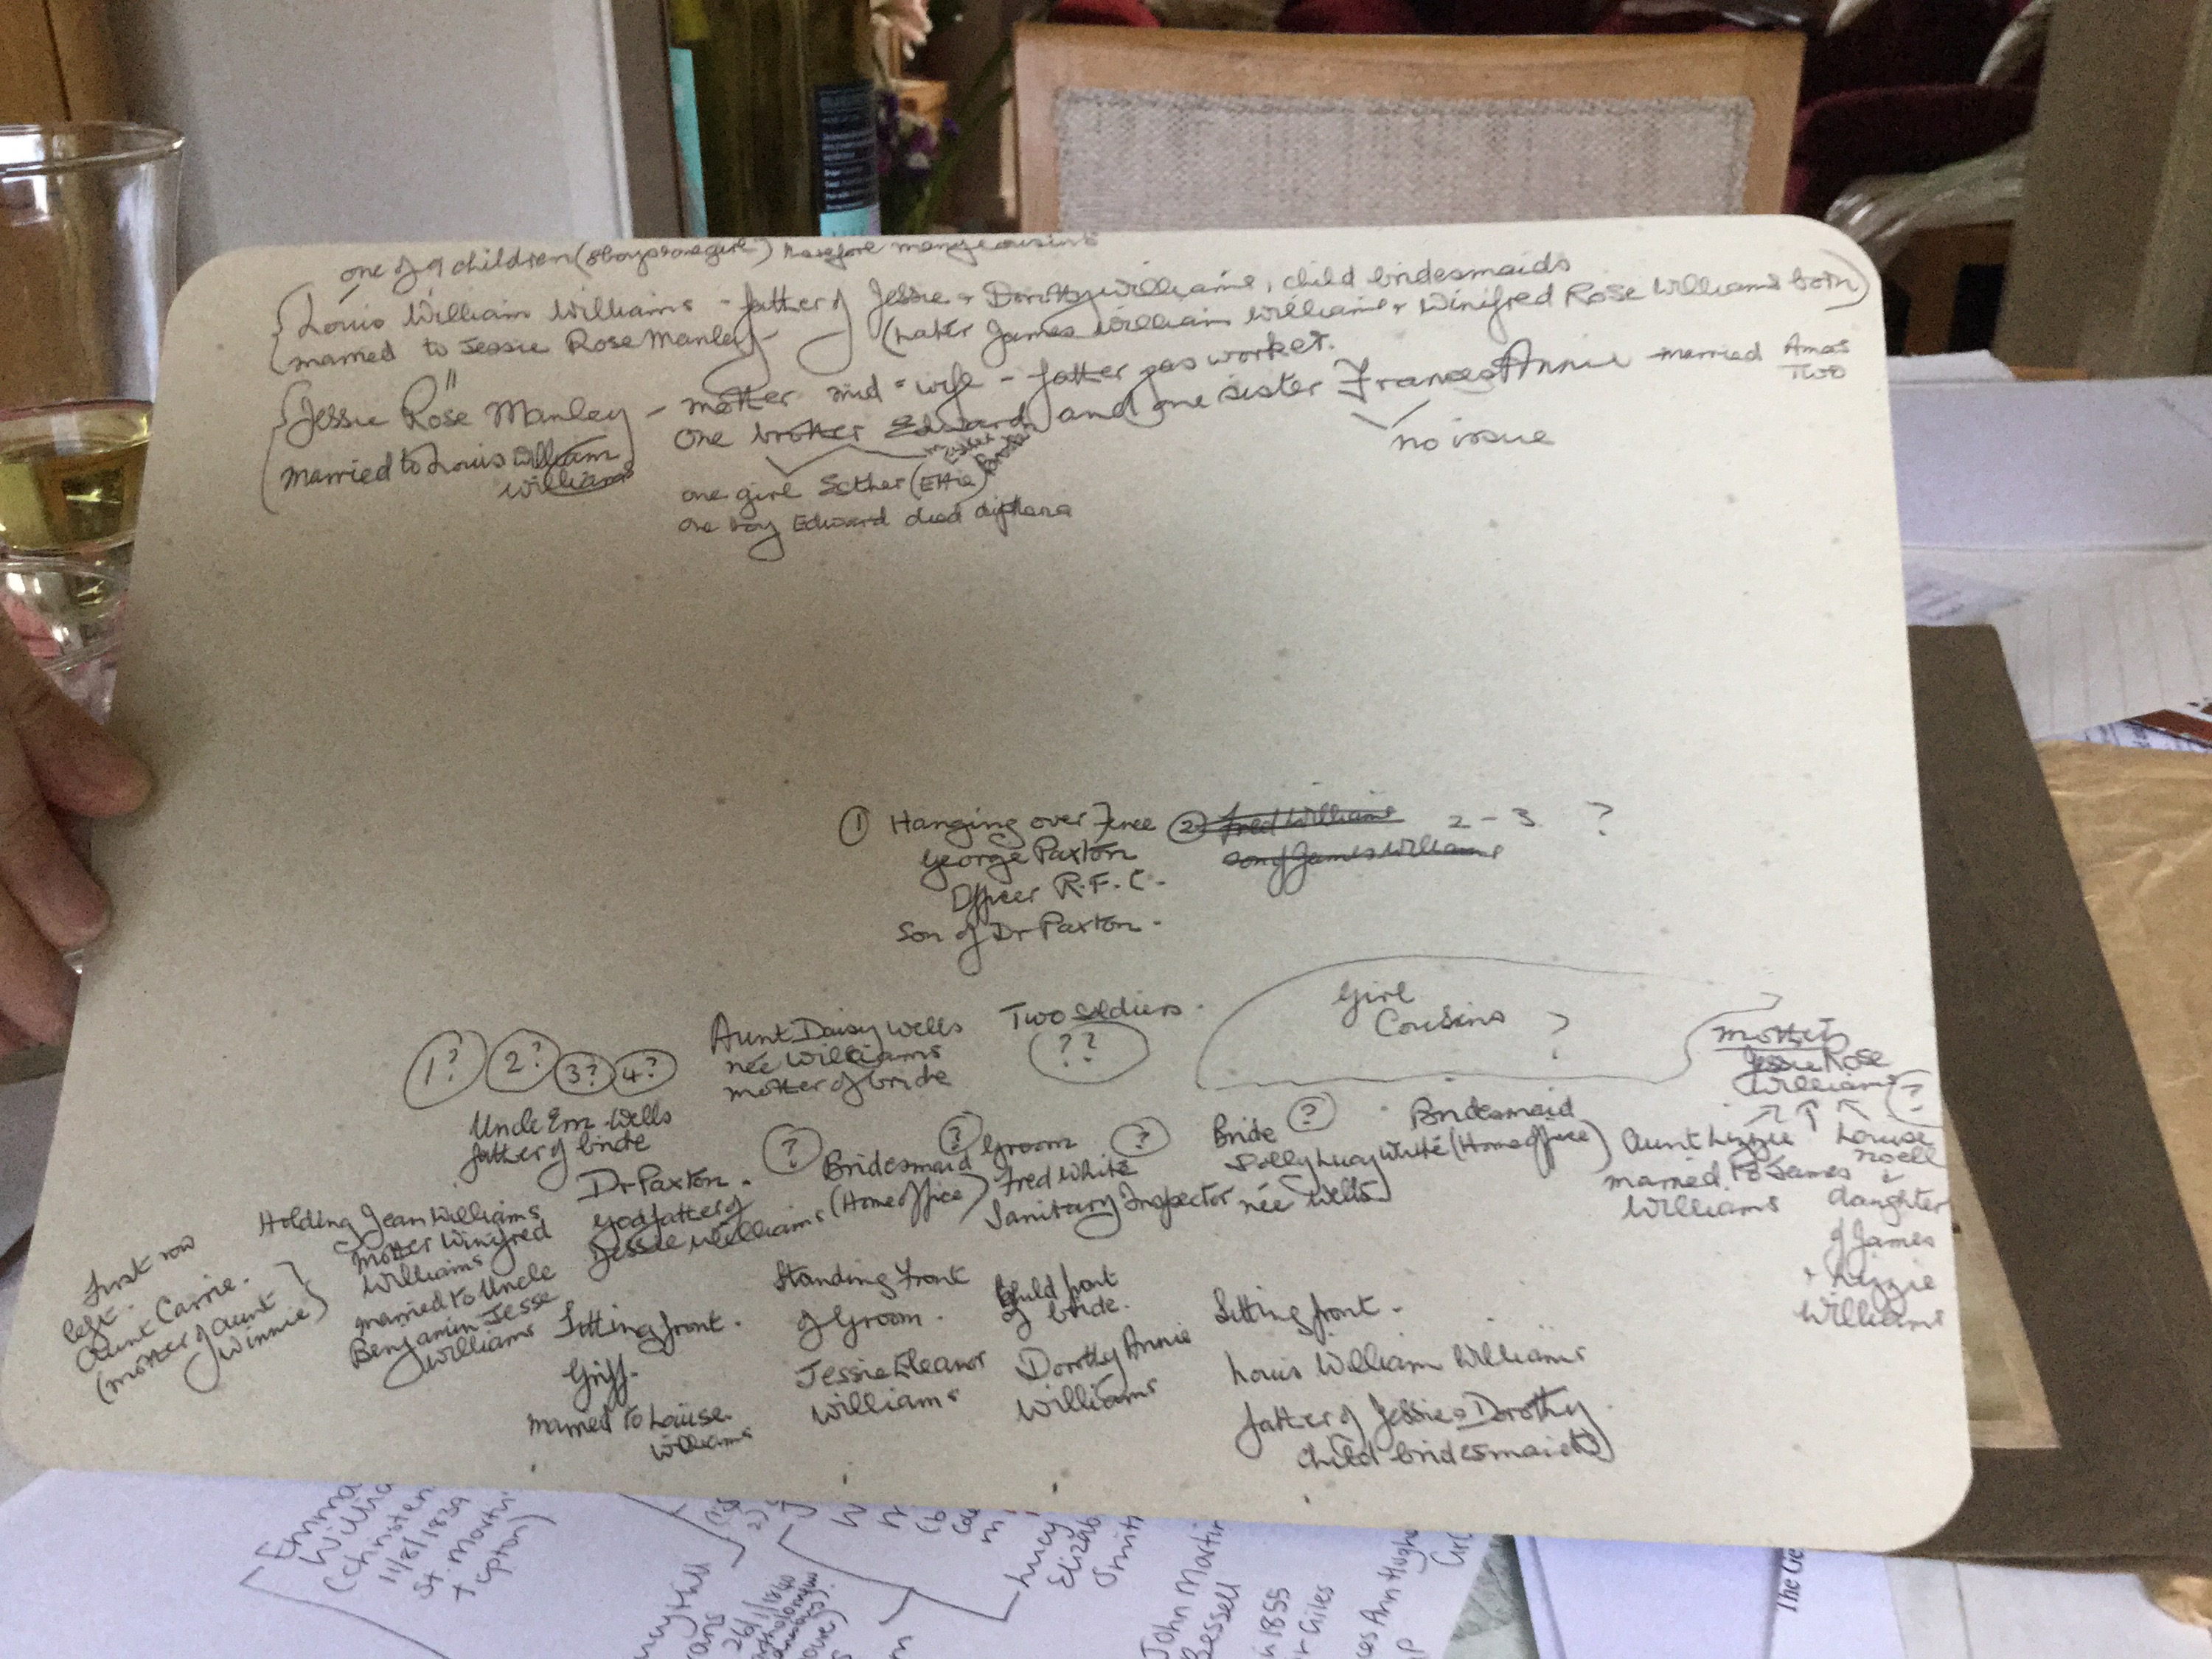 one of 9 children (8 boys one girl) therefore many cousins
Louis William Williams - father of Jessie + Dorothy Williams, child bridesmaids
married to Jessie Rose Manley - (Later James William Williams + Winifred Rose Williams born)
Jessie Rose Manley - mother mid-wife - father gas worker.
One brother Edward and one sister Frances Annie married Amos
Two
no issue
married to Louis William
Williams
one girl Esther (Ettie)
one boy Edward died diptheria
① Hanging over Fence
George Paxton
Officer R.F.C.
Son of Dr Paxton.
② Fred Williams
son of James Williams
2 - 3 ?
1? 2? 3? 4?
Aunt Daisy Wells
née Williams
mother of bride
Two soldiers.
??
Girl
Cousins ?
mother
Jessie Rose
Williams
?
Uncle Em. Wells
father of bride
Dr Paxton.
Godfather of
Jessie Williams
?
Bridesmaid
(Home office)
?
Groom
Fred White
Sanitary Inspector
?
Bride
Polly Lucy White
née Wells
?
Bridesmaid
(Home office)
Aunt Lizzie
married to James
Williams
Louise
Noell
daughter
of James
+ Lizzie
Williams
first row
left.
Aunt Carrie.
(mother of Aunt
Winnie)
Holding Jean Williams
Mother Winifred
Williams
married to Uncle
Benjamin Jesse
Williams
Sitting front.
Griff.
Married to Louise.
Williams
Standing Front
of Groom.
Jessie Eleanor
Williams
front
of bride.
Dorothy Annie
Williams
Sitting front.
Louis William Williams
father of Jessie + Dorothy
child bridesmaids
Emma
(christen
11/8/1839
St. Martin
Tipton)
26/1/1840
Lucy
Elizab
Smith
John Martin
Bessell
1855
Giles
Ann Hugh
The Ge